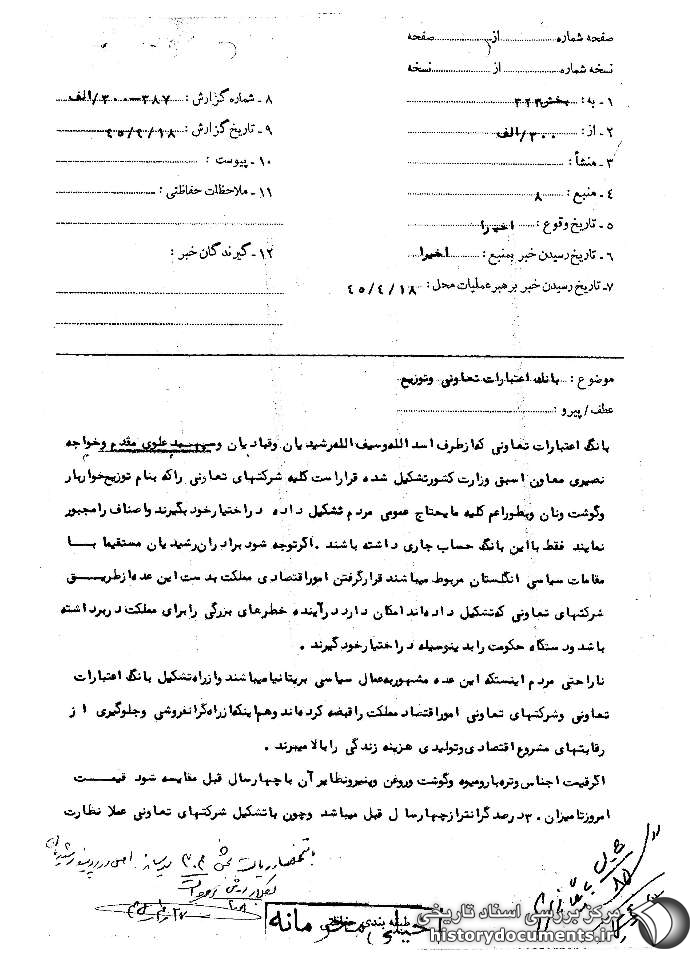 صفحه شماره ........ از ........ صفحه
نسخه شماره ........ از ........ نسخه
۱ - به : بخش ۳۲۳
۲ - از : ۳۰۰/الف
۳ - منشأ :
۴ - منبع : ۸
۵ - تاریخ وقوع : اخیرا
۶ - تاریخ رسیدن خبر بمنبع : اخیرا
۷ - تاریخ رسیدن خبر برهبر عملیات محل : ۴۵/۴/۱۸
۸ - شماره گزارش : ۳۸۷-۳۰۰/الف
۹ - تاریخ گزارش : ۴۵/۴/۱۸
۱۰ - پیوست :
۱۱ - ملاحظات حفاظتی :
۱۲ - گیرندگان خبر :
موضوع : بانک اعتبارات تعاونی وتوزیع
عطف / پیرو :
بانک اعتبارات تعاونی که ازطرف اسد الله وسیف الله رشیدیان وقبادیان وسپهبد علوی مقدم وخواجه
نصیری معاون اسبق وزارت کشورتشکیل شده قراراست کلیه شرکتهای تعاونی راکه بنام توزیع خواربار
وگوشت ونان وبطوراعم کلیه مایحتاج عمومی مردم تشکیل داده دراختیارخود بگیرند واصناف رامجبور
نمایند فقط بااین بانک حساب جاری داشته باشند . اگرتوجه شود برادران رشیدیان مستقیما بـا
مقامات سیاسی انگلستان مربوط میباشند قرارگرفتن اموراقتصادی مملکت بدست این عده ازطریـق
شرکتهای تعاونی که تشکیل داده اند امکان دارد درآینده خطرهای بزرگی رابرای مملکت دربرداشته
باشد ودستگاه حکومت رابدینوسیله دراختیارخود گیرند .
ناراحتی مردم اینستکه این عده مشهوربه عمال سیاسی بریتانیا میباشند وازراه تشکیل بانک اعتبارات
تعاونی وشرکتهای تعاونی اموراقتصاد مملکت راقبضه کرده اند وهم اینکه ازراه گرانفروشی وجلوگیری از
رقابتهای مشروع اقتصادی وتولیدی هزینه زندگی رابالا میبرند .
اگرقیمت اجناس وتره بارومیوه وگوشت وروغن وپنیرونظایر آن باچهارسال قبل مقایسه شود قیمـت
امروزتا میزان ۳۰ درصد گرانترازچهارسال قبل میباشد وچون باتشکیل شرکتهای تعاونی عملا نظارت
طبقه بندی حفاظتی
خیلی محرمانه
مرکز بررسی اسناد تاریخی
historydocuments.ir